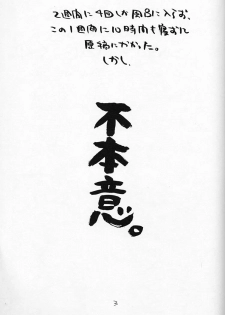 2週間に4回しか風呂に入らず、
この1週間に10時間も寝ずに
原稿にかかった。
しかし、
不本意。
3